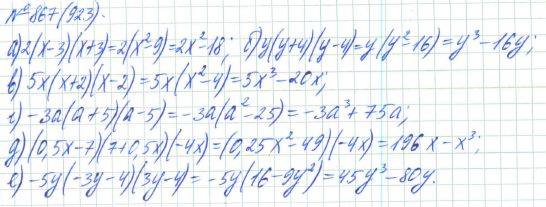 №867(923).
а) 2(x-3)(x+3)=2(x²-9)=2x²-18; б) y(y+4)(y-4)=y(y²-16)=y³-16y;
в) 5x(x+2)(x-2)=5x(x²-4)=5x³-20x;
г) -3a(a+5)(a-5)=-3a(a²-25)=-3a³+75a;
д) (0,5x-7)(7+0,5x)(-4x)=(0,25x²-49)(-4x)=196x-x³;
е) -5y(-3y-4)(3y-4)=-5y(16-9y²)=45y³-80y.